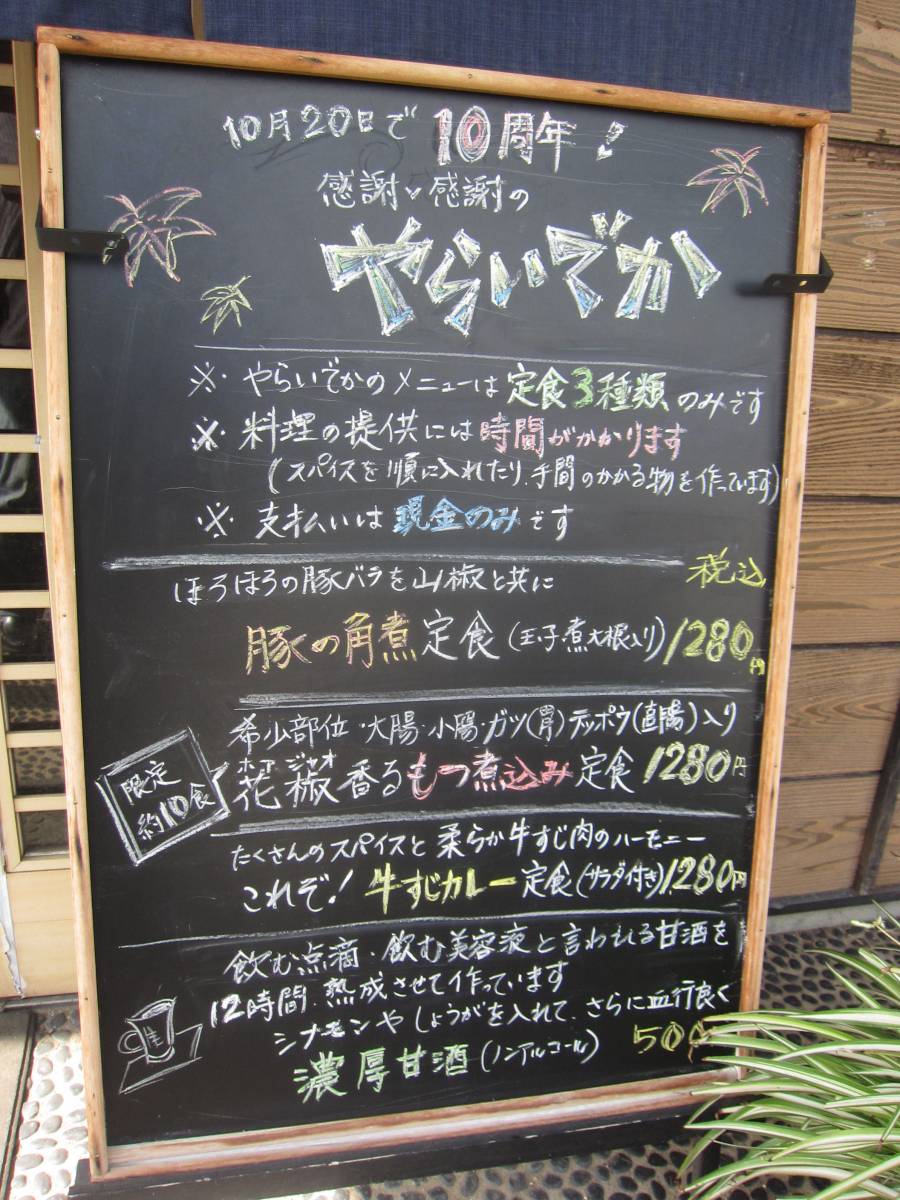 10月20日で10周年!
感謝、感謝の
やらいでか
※やらいでかのメニューは定食3種類のみです
※料理の提供には時間がかかります
(スパイスを順に入れたり、手間のかかる物を作っています)
※支払いは現金のみです
税込
ほろほろの豚バラを山椒と共に
豚の角煮定食(玉子煮大根入り)1280円
希少部位・大腸・小腸・ガツ(胃)テッポウ(直腸)入り
ホア ジャオ
花椒香るもつ煮込み定食1280円
限定
約10食
たくさんのスパイスと柔らか牛すじ肉のハーモニー
これぞ!牛すじカレー定食(サラダ付き)1280円
飲む点滴・飲む美容液と言われる甘酒を
12時間、熟成させて作っています
シナモンやしょうがを入れて、さらに血行良く
濃厚甘酒(ノンアルコール) 500